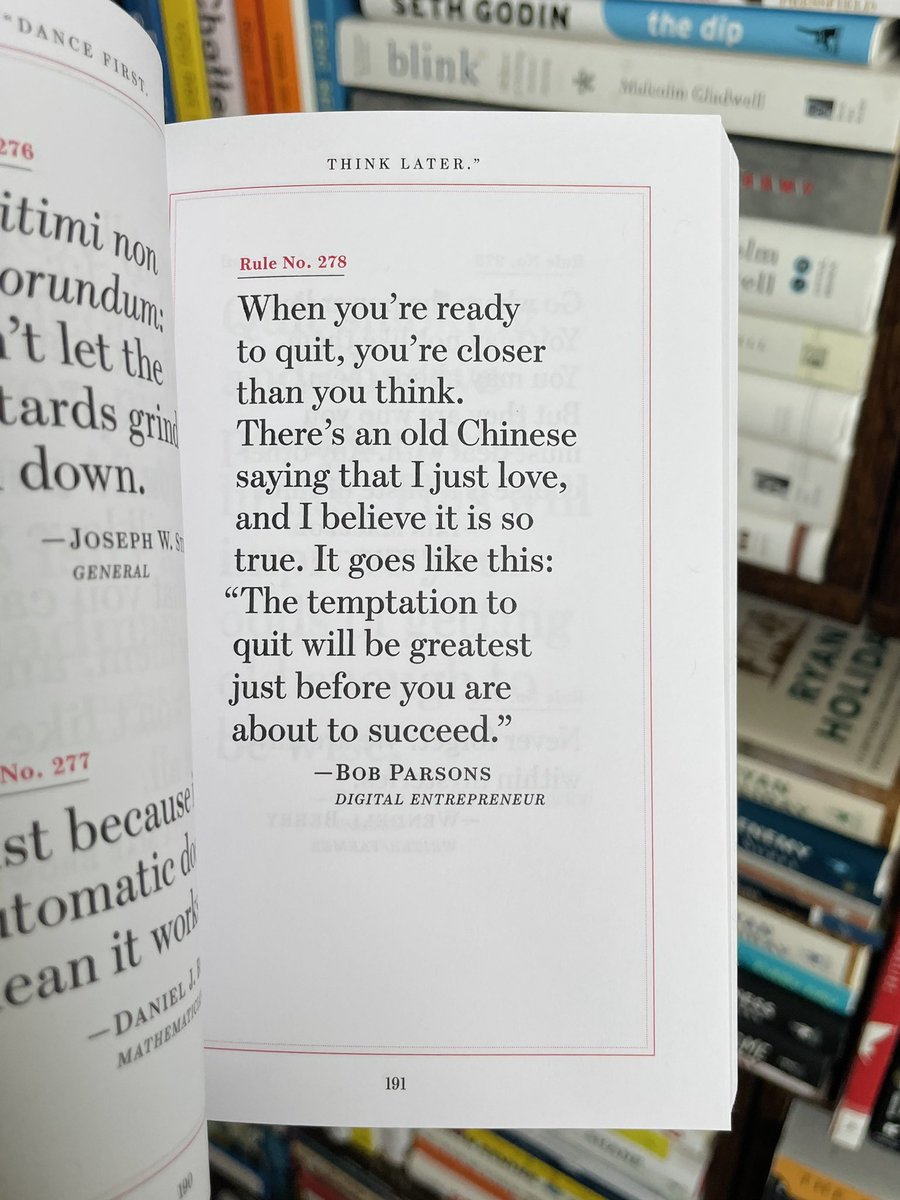 "DANCE FIRST.
276
itimi non
orundum:
't let the
tards grind
down.
—JOSEPH W.
GENERAL
No. 277
st because
utomatic
ean it
—DANIEL J.
190
THINK LATER."
Rule No. 278
When you're ready
to quit, you're closer
than you think.
There's an old Chinese
saying that I just love,
and I believe it is so
true. It goes like this:
"The temptation to
quit will be greatest
just before you are
about to succeed."
—BOB PARSONS
DIGITAL ENTREPRENEUR
191
SETH GODIN the dip
blink Malcolm Gladwell
RYAN
HOLIDA
ENEMY